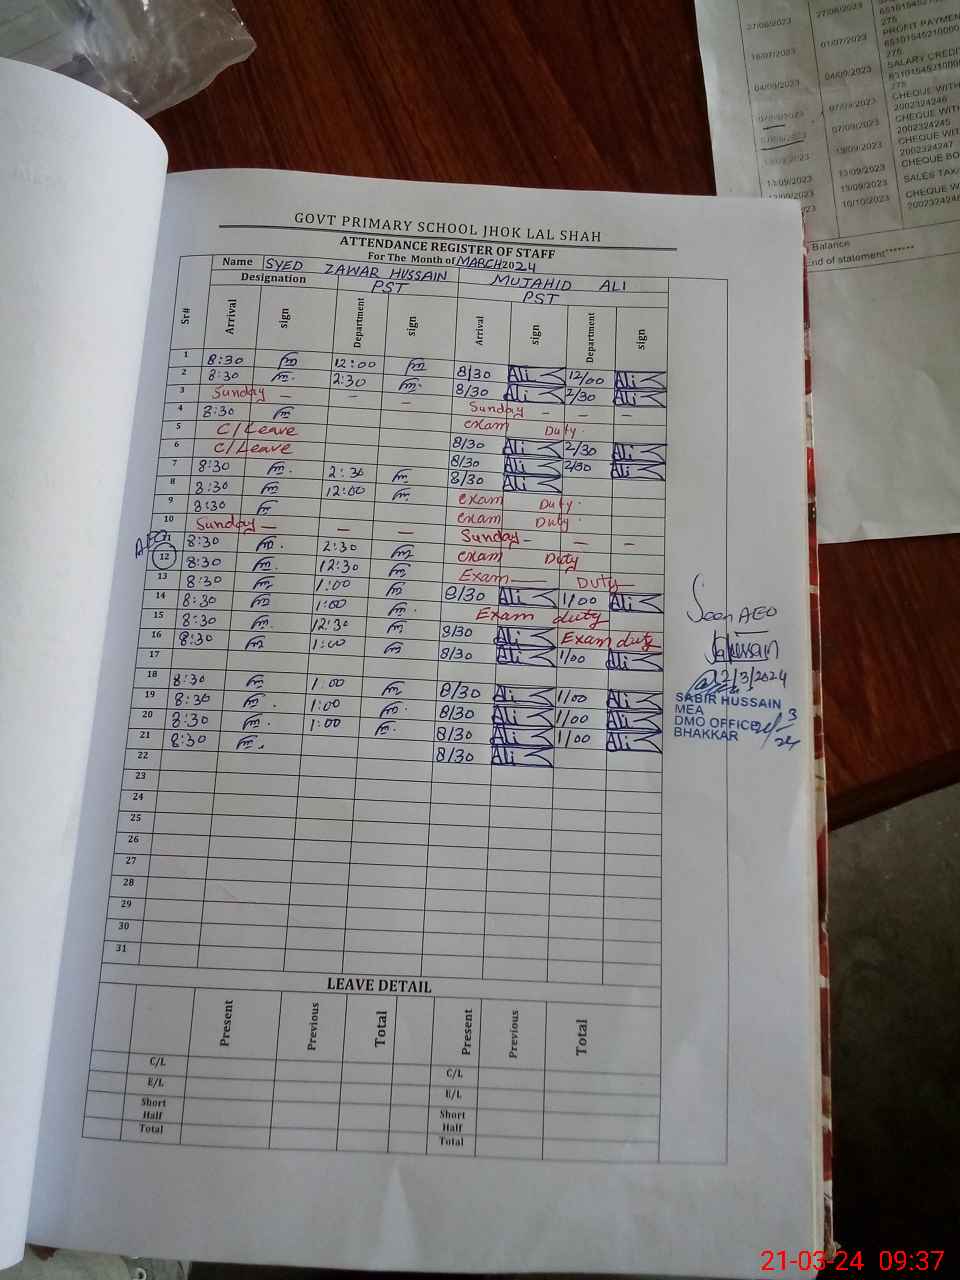 27/06/2023 27/06/2023
275
PROFIT PAYMEN
16/07/2023 01/07/2023 65101545210000
275
SALARY CREDI
04/09/2023 04/09/2023
275
07/09/2023 CHEQUE WITH
2002324246
07/09/2023 CHEQUE WIT
2002324245
13/09/2023 CHEQUE WIT
2002324247
13/09/2023 13/09/2023 CHEQUE BO
13/09/2023 SALES TAX/
10/10/2023 CHEQUE W
Balance
End of statement*******
GOVT PRIMARY SCHOOL JHOK LAL SHAH
ATTENDANCE REGISTER OF STAFF
For The Month of MARCH 2024
Name SYED ZAWAR HUSSAIN MUJAHID ALI
Designation PST PST
Sr# Arrival sign Department sign Arrival sign Department sign
1 8:30 12:00 8/30 Ali 12/00 Ali
2 8:30 2:30 8/30 Ali 2/30 Ali
3 Sunday — - - Sunday - - -
4 8:30 exam Duty.
5 C/Leave 8/30 Ali 2/30 Ali
6 C/Leave 8/30 Ali 2/30 Ali
7 8:30 2:30 8/30 Ali
8 8:30 12:00 exam Duty.
9 8:30 exam Duty.
10 Sunday — — — Sunday - — —
11 8:30 2:30 exam Duty
12 8:30 12:30 Exam — Duty
13 8:30 1:00 8/30 Ali 1/00 Ali
14 8:30 1:00 Exam duty
15 8:30 12:30 8/30 Ali Exam duty
16 8:30 1:00 8/30 Ali 1/00 Ali
17
18 8:30 1:00 8/30 Ali 1/00 Ali
19 8:30 1:00 8/30 Ali 1/00 Ali
20 8:30 1:00 8/30 Ali 1/00 Ali
21 8:30 8/30 Ali
22
23
24
25
26
27
28
29
30
31
Seen AEO
12/3/2024
SABIR HUSSAIN
MEA
DMO OFFICE
BHAKKAR
LEAVE DETAIL
Present Previous Total Present Previous Total
C/L C/L
E/L E/L
Short Short
Half Half
Total Total
21-03-24 09:37